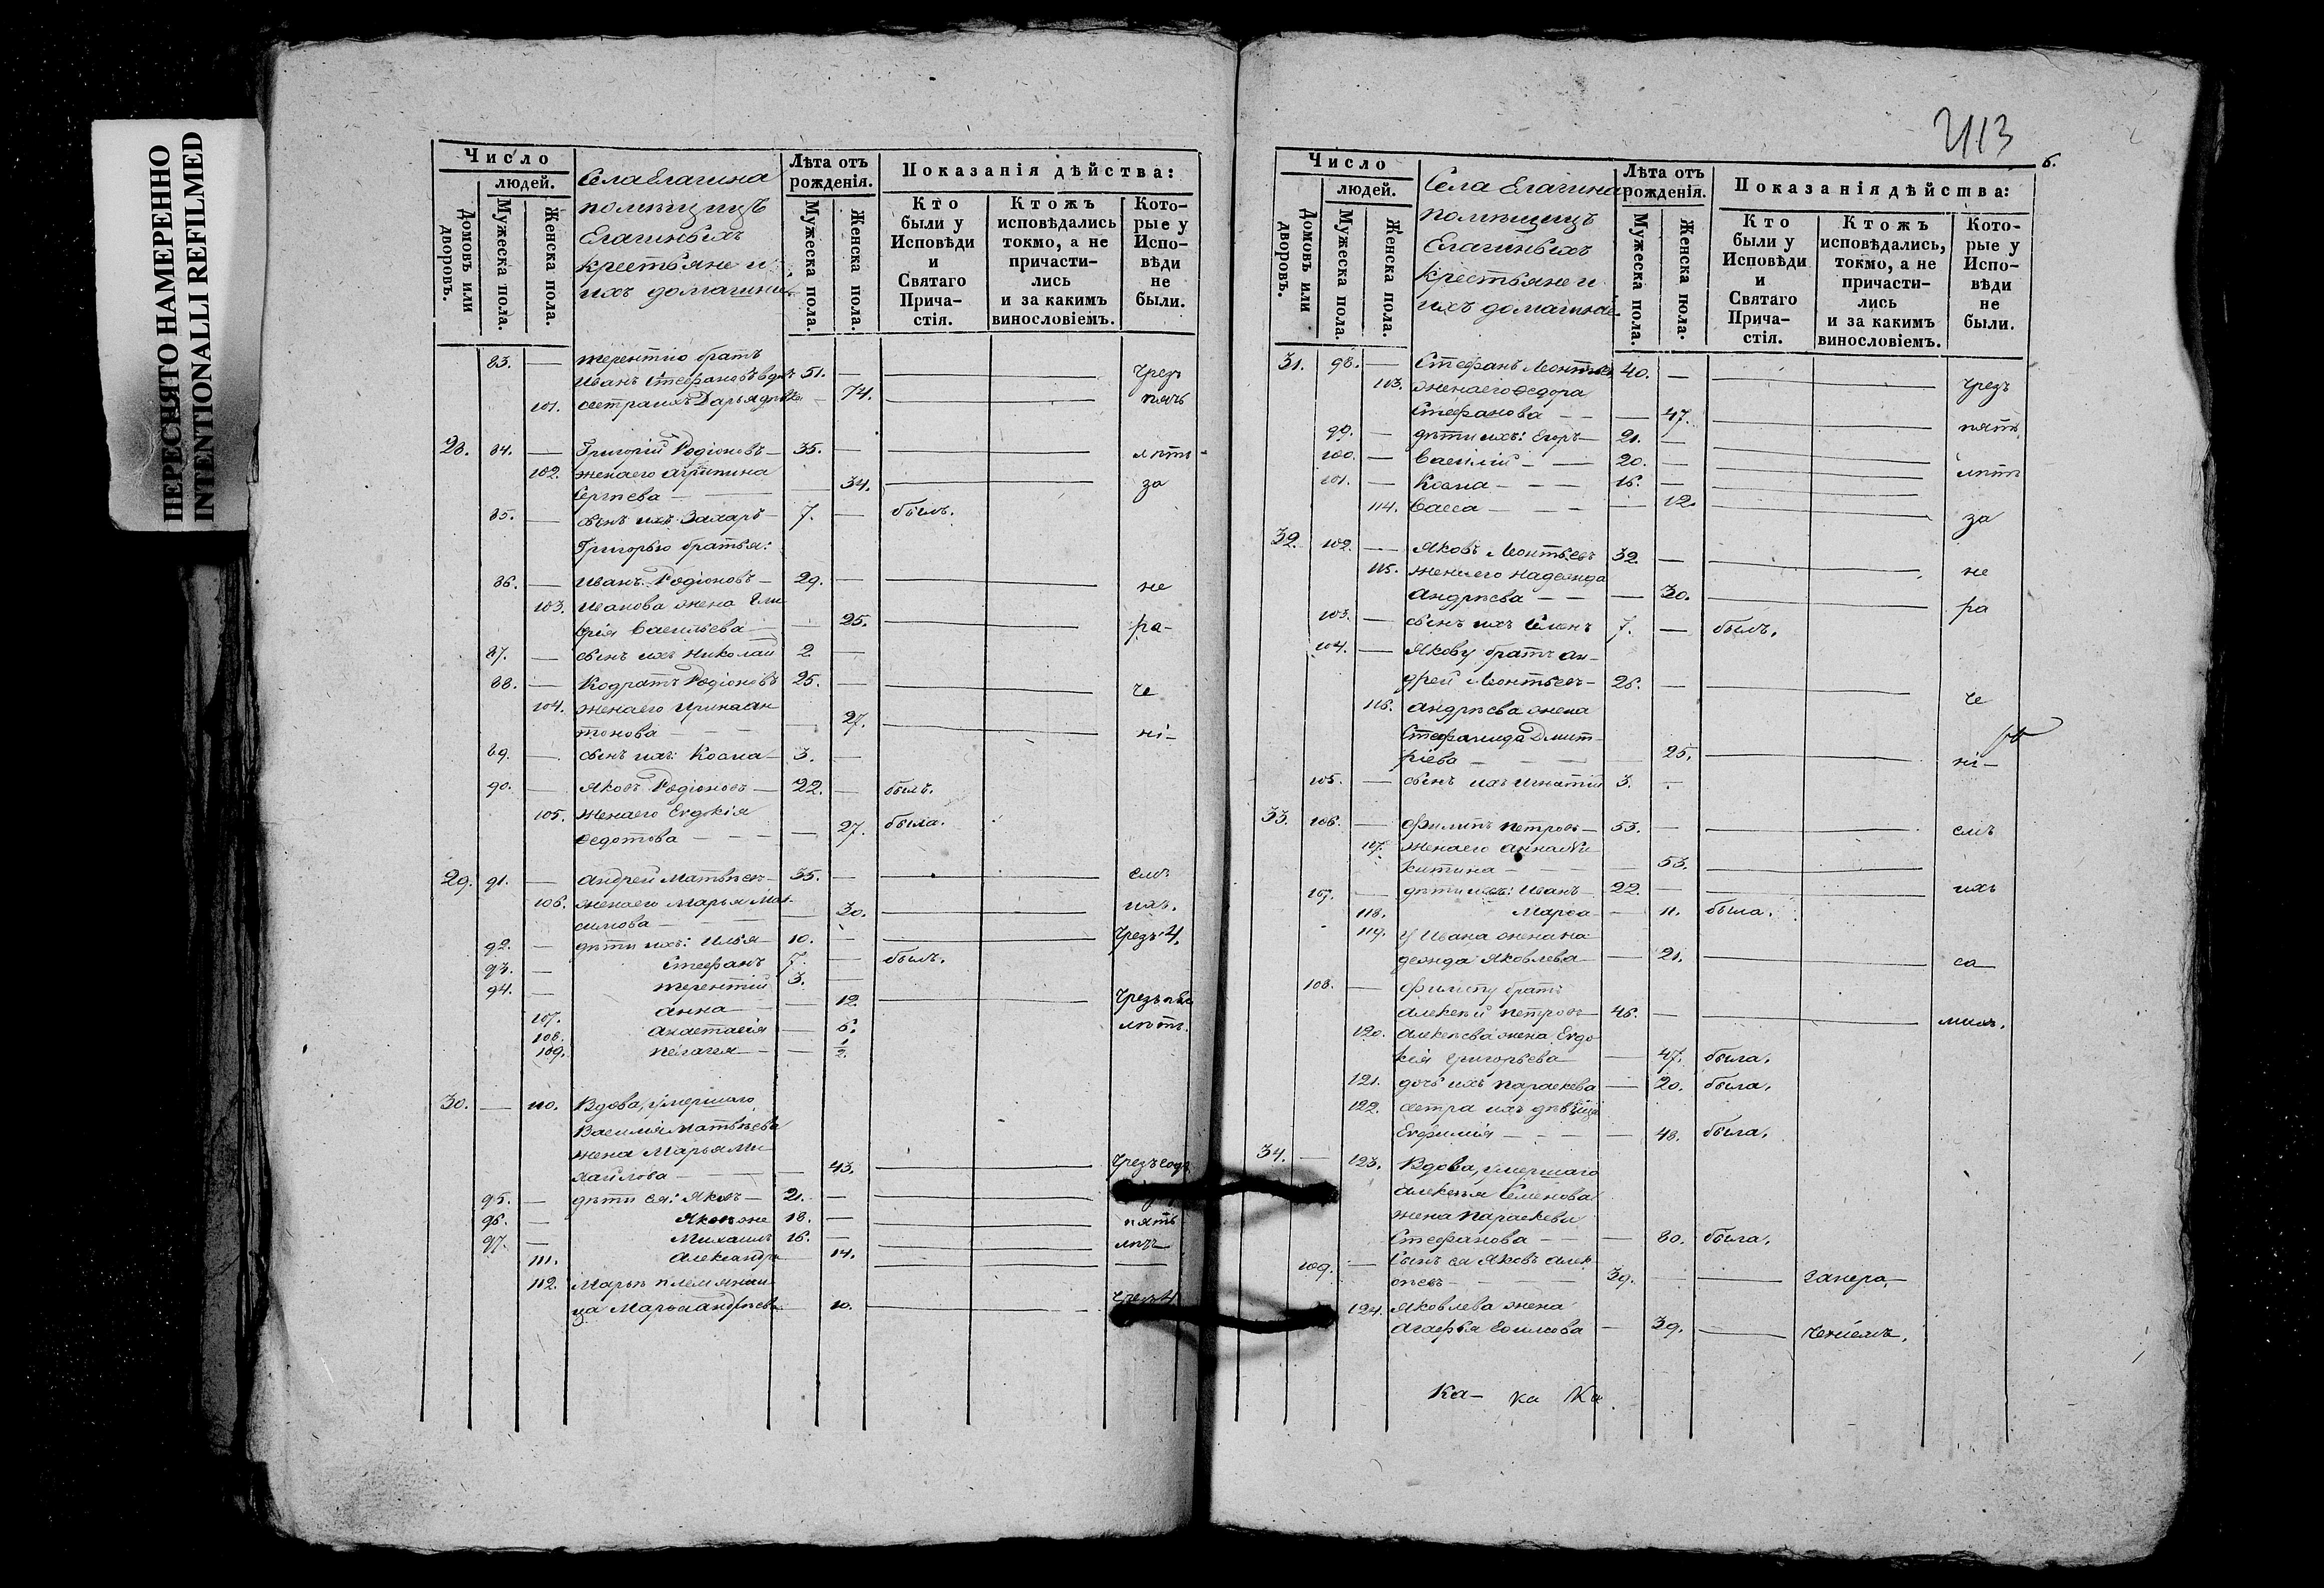 ПЕРЕСНЯТО НАМЕРЕННО
INTENTIONALLI REFILMED
Число
людей.
Домовъ или дворовъ.
Мужеска пола.
Женска пола.
Села Елагина
помѣщицъ
Елагиныхъ
крестьяне и
ихъ домашніе
Лѣта отъ рожденія.
Мужеска пола.
Женска пола.
Показанія дѣйства:
Кто были у Исповѣди и Святаго Прича-стія.
Ктожъ исповѣдались токмо, а не причасти-лись и за какимъ винословіемъ.
Кото-рые у Испо-вѣди не были.
83. — Терентію братъ
Иванъ Стефановъ вдовъ 51. — чрезъ
101. сестра ихъ Дарья дѣвка — 74. пять
28. 84. — Григорій Родіоновъ — 35. — лѣтъ
102. жена его Агрипина
Сергѣева — — 34. за
85. — сынъ ихъ Захаръ — 7. — былъ.
Григорью братья:
86. — Иванъ Родіоновъ — 29. — не
103. Иванова жена Гли
керія Васильева — — 25. ра-
87. — сынъ ихъ Николай 2 —
88. — Кодратъ Родіоновъ 25. — че
104. жена его Ирина Ан
тонова — — 27. ні-
89. — сынъ ихъ: Козма — 3. —
90. — Яковъ Родіоновъ — 22. — былъ.
105. жена его Евдокія
Федотова — — 27. была.
29. 91. — Андрей Матвѣевъ — 35. — емъ
106. жена его Марья Мак-
симова — — 30. ихъ.
92. — дѣти ихъ: Илья — 10. — чрезъ 4.
93. — Стефанъ 7. — былъ.
94. — Терентій 3. —
107. Анна — — 12.
108. Анастасія — 6. лѣтъ.
109. Пелагея — — 1/2.
30. — 110. Вдова, умершаго
Василія Матвѣева
жена Марья Ми
хайлова — — 43. чрезъ
95. — дѣти ея: Яковъ — 21. —
96. — Яковъ же 18. — пять
97. — Михаилъ 16. — лѣтъ
111. Александра 14.
112. Марьѣ племянни
ца Марья Андреева — 10. чрезъ 4
413
6.
Число
людей.
Домовъ или дворовъ.
Мужеска пола.
Женска пола.
Села Елагина
помѣщицъ
Елагиныхъ
крестьяне и
ихъ домашніе
Лѣта отъ рожденія.
Мужеска пола.
Женска пола.
Показанія дѣйства:
Кто были у Исповѣди и Святаго Прича-стія.
Ктожъ исповѣдались, токмо, а не причасти-лись и за какимъ винословіемъ.
Кото-рые у Испо-вѣди не были.
31. 98. — Стефанъ Леонтьевъ 40. — чрезъ
113. жена его Федора
Стефанова — — 47. пять
99. — дѣти ихъ: Егоръ — 21. —
100. — Василій — — 20. — лѣтъ
101. — Козма — — 16. —
114. Васса — — — 12. за
32. 102. — Яковъ Леонтьевъ 32. — не
115. жена его Надежда
Андрѣева — — — 30. ра
103. — сынъ ихъ Семенъ 7. — былъ.
104. — Якову братъ Ан-
дрей Леонтьевъ — 26. — че
116. Андрѣева жена
Стефанида Дмит-
ріева — — 25. ні-
105. — сынъ ихъ Игнатій 3. —
33. 106. — Филипъ Петровъ — 53. — емъ
117. жена его Анна Ни
китина — — 53.
107. — дѣти ихъ: Иванъ — 22. — ихъ
118. Марѳа — — 11. была.
119. у Ивана жена На
дежда Яковлева — — 21. са
108. — Филипу братъ
Алексѣй Петровъ — 46. — михъ.
120. Алексѣева жена Евдо
кія Григорьева — 47. была.
121. дочь ихъ Параскева — 20. была.
122. сестра ихъ дѣвица
Евфимія — — — — 48. была.
34. — 123. Вдова, умершаго
Алексѣя Семенова
жена Параскева
Стефанова — — — 80. была.
109. — Сынъ ея Яковъ Алек-
сѣевъ — — 39. — за нера
124. Яковлева жена
Агафья Ефимова — 39. ченіемъ.
Ка— ка ка